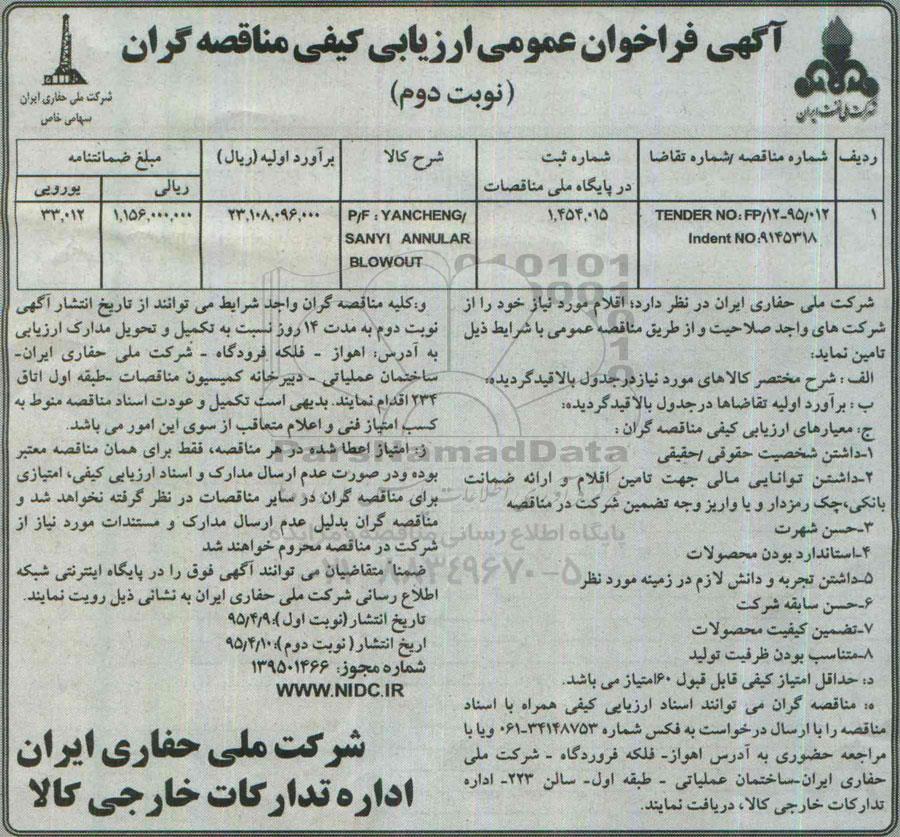 آگهی فراخوان عمومی ارزیابی کیفی مناقصه گران
(نوبت دوم)
شرکت ملی نفت ایران
شرکت ملی حفاری ایران
سهامی خاص
ردیف
شماره مناقصه /شماره تقاضا
شماره ثبت
در پایگاه ملی مناقصات
شرح کالا
برآورد اولیه (ریال)
مبلغ ضمانتنامه
ریالی
یورویی
۱
TENDER NO: FP/۱۲-۹۵/۰۱۲
Indent NO:۹۱۴۵۳۱۸
۱,۴۵۴,۰۱۵
P/F : YANCHENG/
SANYI ANNULAR
BLOWOUT
۲۳,۱۰۸,۰۹۶,۰۰۰
۱,۱۵۶,۰۰۰,۰۰۰
۳۳,۰۱۲
شرکت ملی حفاری ایران در نظر دارد؛ اقلام مورد نیاز خود را از
شرکت های واجد صلاحیت و از طریق مناقصه عمومی با شرایط ذیل
تامین نماید:
الف : شرح مختصر کالاهای مورد نیازدرجدول بالاقیدگردیده:
ب : برآورد اولیه تقاضاها درجدول بالاقیدگردیده:
ج: معیارهای ارزیابی کیفی مناقصه گران :
۱-داشتن شخصیت حقوقی /حقیقی
۲-داشتن توانایی مالی جهت تامین اقلام و ارائه ضمانت
بانکی،چک رمزدار و یا واریز وجه تضمین شرکت در مناقصه
۳-حسن شهرت
۴-استاندارد بودن محصولات
۵-داشتن تجربه و دانش لازم در زمینه مورد نظر
۶-حسن سابقه شرکت
۷-تضمین کیفیت محصولات
۸-متناسب بودن ظرفیت تولید
د: حداقل امتیاز کیفی قابل قبول ۶۰امتیاز می باشد.
ه: مناقصه گران می توانند اسناد ارزیابی کیفی همراه با اسناد
مناقصه را با ارسال درخواست به فکس شماره ۳۴۱۴۸۷۵۳-۰۶۱ ویا با
مراجعه حضوری به آدرس اهواز- فلکه فرودگاه - شرکت ملی
حفاری ایران-ساختمان عملیاتی - طبقه اول- سالن ۲۲۳- اداره
تدارکات خارجی کالا، دریافت نمایند.
و:کلیه مناقصه گران واجد شرایط می توانند از تاریخ انتشار آگهی
نوبت دوم به مدت ۱۴ روز نسبت به تکمیل و تحویل مدارک ارزیابی
به آدرس: اهواز - فلکه فرودگاه - شرکت ملی حفاری ایران-
ساختمان عملیاتی - دبیرخانه کمیسیون مناقصات -طبقه اول اتاق
۲۳۴ اقدام نمایند. بدیهی است تکمیل و عودت اسناد مناقصه منوط به
کسب امتیاز فنی و اعلام متعاقب از سوی این امور می باشد.
ز: امتیاز اعطا شده در هر مناقصه، فقط برای همان مناقصه معتبر
بوده ودر صورت عدم ارسال مدارک و اسناد ارزیابی کیفی، امتیازی
برای مناقصه گران در سایر مناقصات در نظر گرفته نخواهد شد و
مناقصه گران بدلیل عدم ارسال مدارک و مستندات مورد نیاز از
شرکت در مناقصه محروم خواهند شد
ضمنا متقاضیان می توانند آگهی فوق را در پایگاه اینترنتی شبکه
اطلاع رسانی شرکت ملی حفاری ایران به نشانی ذیل رویت نمایند.
تاریخ انتشار (نوبت اول ):۹۵/۴/۹
اریخ انتشار ( نوبت دوم ):۹۵/۴/۱۰
شماره مجوز: ۱۳۹۵۰۱۴۶۶
WWW.NIDC.IR
شرکت ملی حفاری ایران
اداره تدارکات خارجی کالا
ParsNamadData
پایگاه اطلاع رسانی مناقصه و مزایده
۸۸۳۴۹۶۷۰-۵